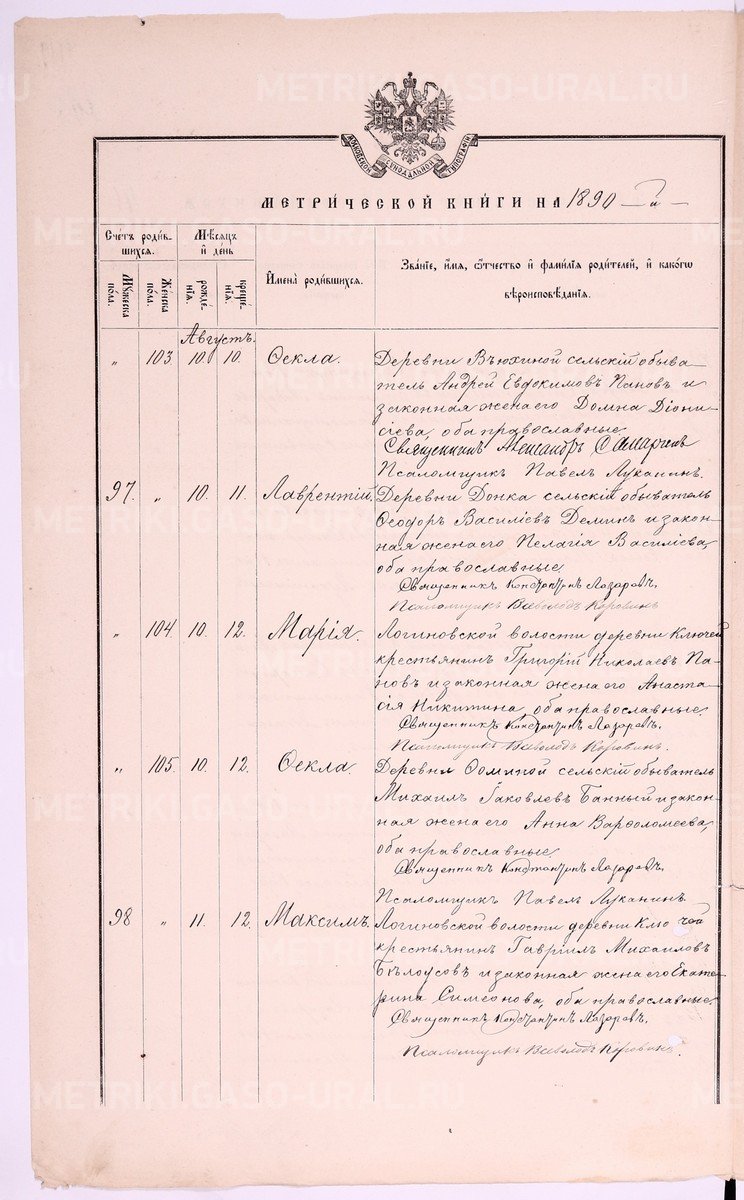 МОСКОВСКОЙ СѴНОДАЛЬНОЙ ТИПОГРАФІИ
МЕТРИ́ЧЕСКОЙ КНИ́ГИ НА 1890 -й-
Сче́тъ роди́в-
шихся.
Мꙋ́жеска
по́ла.
Же́нска
по́ла.
Мѣ́сяцъ
и҆ де́нь
рожде́-
нїѧ.
креще́-
нїѧ.
И҆мена̀ роди́вшихся.
Зва́нїе, и҆́мя, ѻ҆́тчество и҆ фами́лїѧ роди́телей, и҆ како́гѡ
вѣроисповѣ́данїѧ.
Августъ.
„ 103. 10. 10. Ѳекла. Деревни Вьюхиной сельскій обыва-
тель Андрей Евдокимовъ Пановъ и
законная жена его Домна Діони-
сіева, оба православные
Священникъ Александръ
Псаломщикъ Павелъ Луканинъ.
97. „ 10. 11. Лаврентій. Деревни Донка сельскій обыватель
Ѳеодоръ Василіевъ Деминъ и закон-
ная жена его Пелагія Василіева,
оба православные
Священникъ Константинъ Лазаревъ.
Псаломщикъ Всеволодъ Коровинъ
„ 104. 10. 12. Марія. Логиновской волости деревни Ключей
крестьянинъ Григорій Николаевъ Па-
новъ и законная жена его Анаста-
сія Никитина, оба православные.
Священникъ Константинъ Лазаревъ.
Псаломщикъ Всеволодъ Коровинъ.
„ 105. 10. 12. Ѳекла Деревни Ѳоминой сельскій обыватель
Михаилъ Іаковлевъ Банный и закон-
ная жена его Анна Варѳоломеева,
оба православные
Священникъ Константинъ Лазаревъ.
Псаломщикъ Павелъ Луканинъ
98 „ 11. 12. Максимъ. Логиновской волости деревни Ключей
крестьянинъ Гавріилъ Михаиловъ
Бѣлоусовъ и законная жена его Екате-
рина Симеонова, оба православные
Священникъ Константинъ Лазаревъ.
Псаломщикъ Всеволодъ Коровинъ.
METRIKI.GASO-URAL.RU